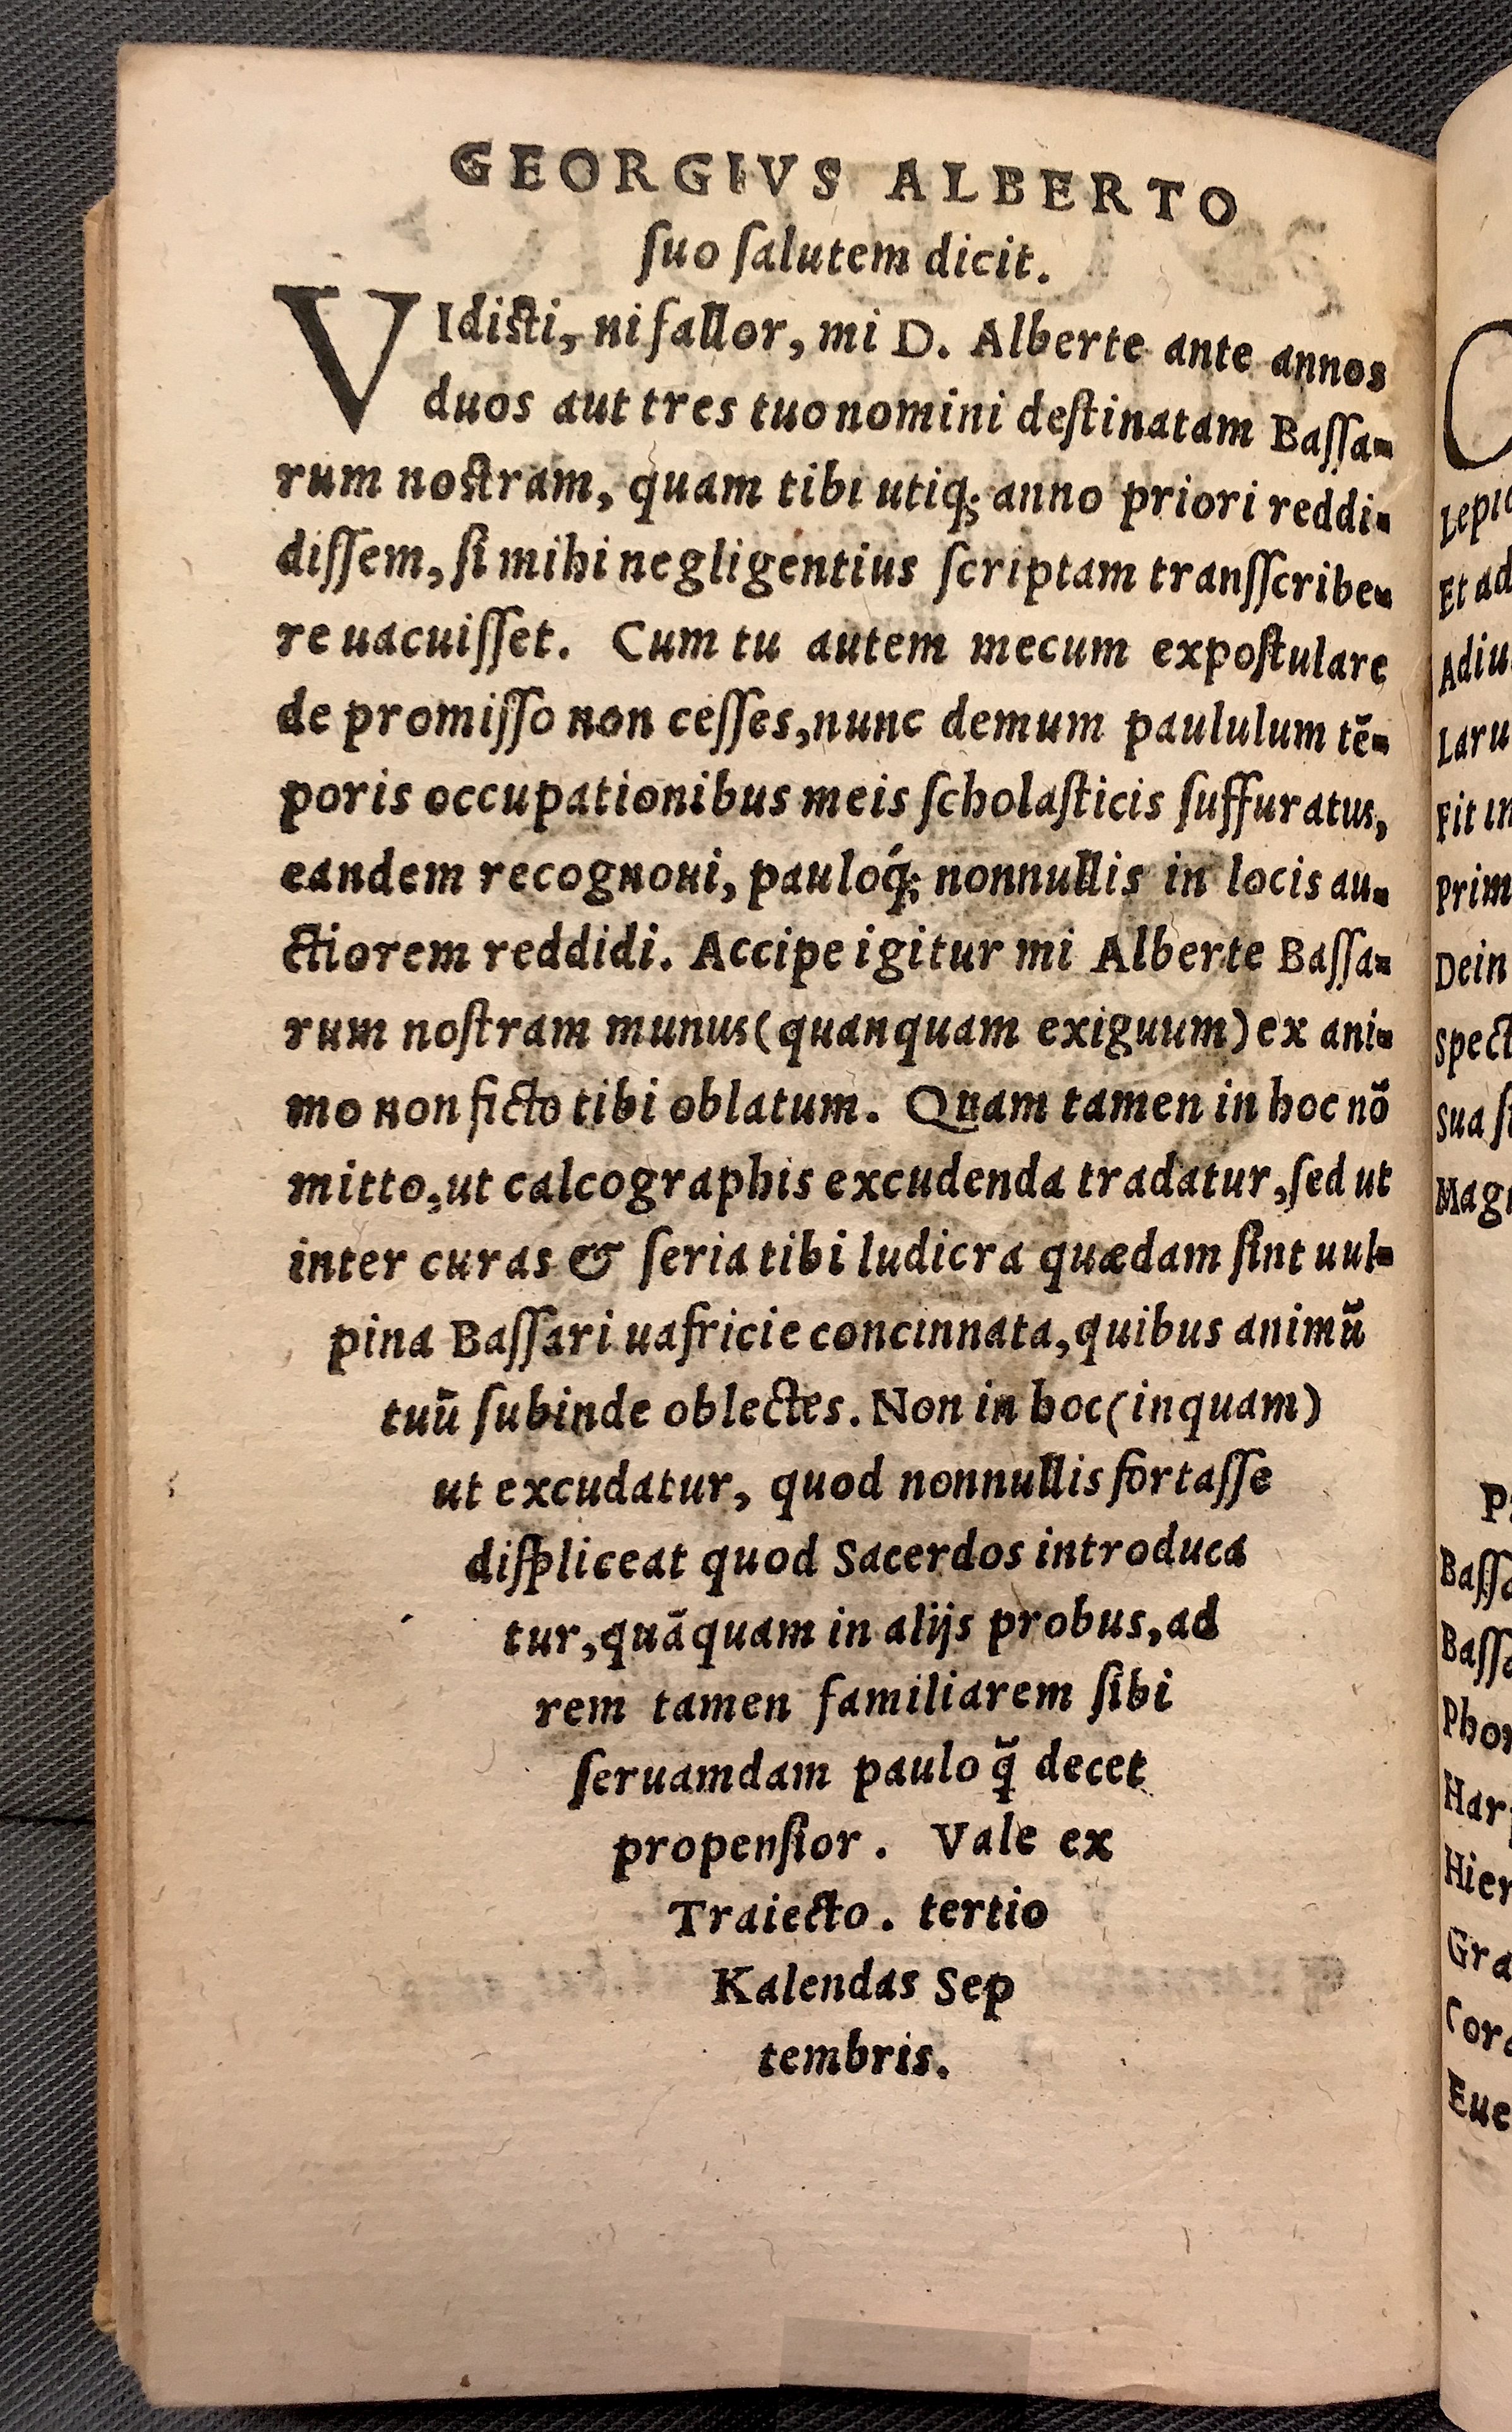 GEORGIVS ALBERTO
ſuo ſalutem dicit.
VIdiſti, ni fallor, mi D. Alberte ante annos
duos aut tres tuo nomini deſtinatam Baſſa-
rum noſtram, quam tibi utiq; anno priori reddi-
diſſem, ſi mihi negligentius ſcriptam tranſſcribe-
re uacuiſſet. Cum tu autem mecum expoſtulare
de promiſſo non ceſſes, nunc demum paululum tē-
poris occupationibus meis ſcholaſticis ſuffuratus,
eandem recognoui, pauloq́; nonnullis in locis au-
ctiorem reddidi. Accipe igitur mi Alberte Baſſa-
rum noſtram munus (quanquam exiguum) ex ani-
mo non ficto tibi oblatum. Quam tamen in hoc nō
mitto, ut calcographis excudenda tradatur, ſed ut
inter curas & ſeria tibi ludicra quædam ſint uul-
pina Baſſari uafricie concinnata, quibus animū
tuū ſubinde oblectes. Non in hoc (inquam)
ut excudatur, quod nonnullis fortaſſe
diſpliceat quod Sacerdos introduca
tur, quāquam in alijs probus, ad
rem tamen familiarem ſibi
ſeruamdam paulo q̄̃ decet
propenſior. Vale ex
Traiecto. tertio
Kalendas Sep
tembris.
Lepid
Et ad
Adiu
Laru
Fit in
Prim
Dein
Spect
Sua ſi
Mag
P
Baſſa
Baſſa
Phor
Harp
Hier
Gra
Cora
Eue